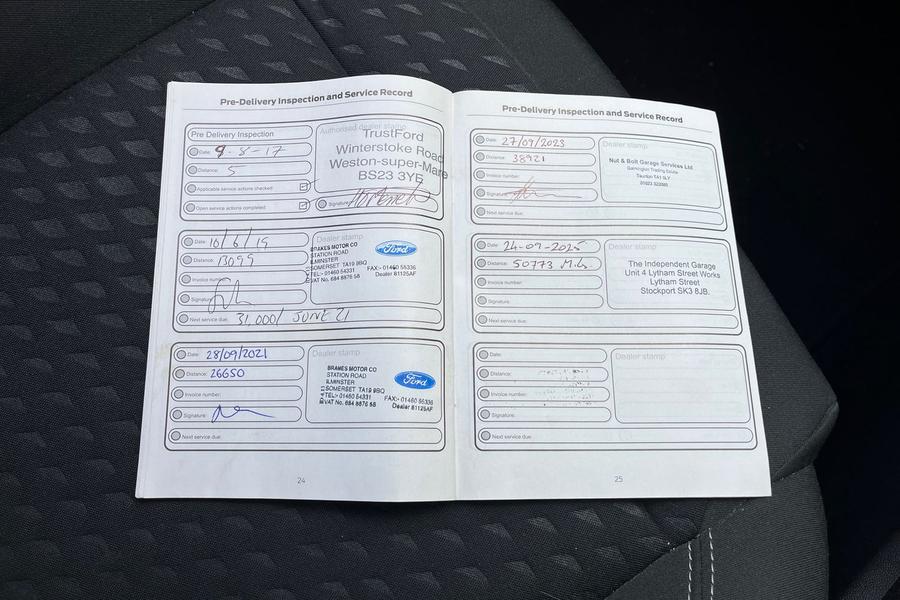 Pre-Delivery Inspection and Service Record
Pre Delivery Inspection
Date: 9-8-17
Distance: 5
Applicable service actions checked
Open service actions completed
Authorised dealer stamp
TrustFord
Winterstoke Road
Weston-super-Mare
BS23 3YE
Signature:
Date: 10/6/19
Distance: 13099
Invoice number:
Signature:
Next service due: 31,000/ JUNE 21
Dealer stamp
BRAMES MOTOR CO
STATION ROAD
ILMINSTER
SOMERSET TA19 9BQ
TEL:- 01460 54331 FAX:- 01460 55336
VAT No. 684 8876 58 Dealer 81125AF
Ford
Date: 28/09/2021
Distance: 26650
Invoice number:
Signature:
Next service due:
Dealer stamp
BRAMES MOTOR CO
STATION ROAD
ILMINSTER
SOMERSET TA19 9BQ
TEL:- 01460 54331 FAX:- 01460 55336
VAT No. 684 8876 58 Dealer 81125AF
Ford
24
Pre-Delivery Inspection and Service Record
Date: 27/07/2023
Distance: 38921
Invoice number:
Signature:
Next service due:
Dealer stamp
Nut & Bolt Garage Services Ltd
Trading Estate
Taunton TA1
01823
Date: 24-09-2025
Distance: 50773 Mls.
Invoice number:
Signature:
Next service due:
Dealer stamp
The Independent Garage
Unit 4 Lytham Street Works
Lytham Street
Stockport SK3 8JB.
Date:
Distance:
Invoice number:
Signature:
Next service due:
Dealer stamp
25